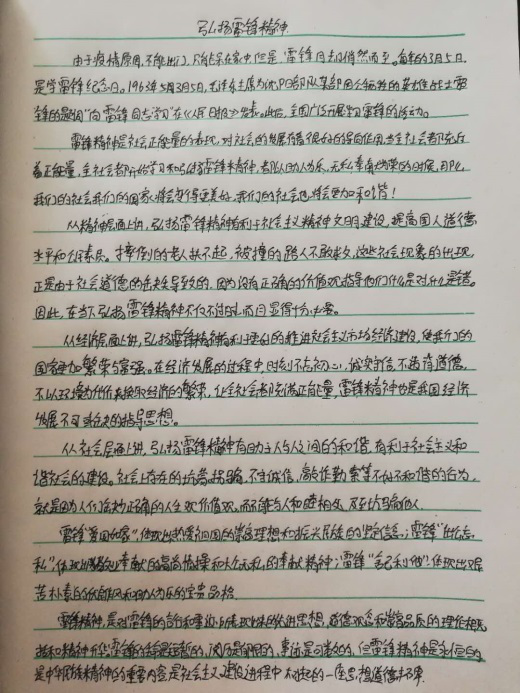 弘扬雷锋精神
由于疫情原因,不能出门,只能呆在家中,但是,雷锋日却悄然而至。每年的3月5日
是学雷锋纪念日。1963年3月5日,毛泽东主席为沈阳部队某部因公牺牲的英雄战士雷
锋的题词"向雷锋同志学习"在《人民日报》发表。此后,全国广泛开展学习雷锋的活动。
雷锋精神是社会正能量的表现,对社会的发展有着很好的导向作用,当全社会都充斥
着正能量,全社会都开始学习和弘扬雷锋精神,都以助人为乐,无私奉献为荣的时候,那么,
我们的社会我们的国家将会变得更美好,我们的社会也将会更加和谐!
从精神层面上讲,弘扬雷锋精神有利于社会主义精神文明建设,提高国人道德
水平和公民素质。摔倒的老人扶不起,被撞的路人不敢救,这些社会现象的出现,
正是由于社会道德的缺失导致的,因为没有正确的价值观指导他们什么是对什么是错。
因此,在当下弘扬雷锋精神不仅不过时,而且显得十分必要。
从经济层面上讲,弘扬雷锋精神有利于更好的推进社会主义市场经济建设,使我们的
国家更加繁荣富强。在经济发展的过程中,时刻不忘初心,诚实守信,不违背道德,
不以环境为代价来换取经济的繁荣,让全社会都充满正能量,雷锋精神也是我国经济
发展不可缺失的指导思想。
从社会层面上讲,弘扬雷锋精神有助于人与人之间的和谐,有利于社会主义和
谐社会的建设。社会上存在的坑蒙拐骗,不守诚信,敲诈勒索等不和谐的行为,
就是因为人们没有正确的人生观价值观,而不能与人和睦相处,及至坑骗他人。
雷锋"爱国如家"体现出热爱祖国的崇高理想和振兴民族的坚定信念;雷锋"公而忘
私"体现出爱岗敬业奉献的高尚情操和大公无私的奉献精神;雷锋"舍己利他"体现出艰
苦朴素的优良作风和助人为乐的宝贵品格。
雷锋精神,是对雷锋的言行和事迹所体现出来的先进思想,道德观念和崇高品质的理性概
括和精神升华。雷锋的生命是短暂的,阅历是有限的,事迹是可数的,但雷锋精神是永恒的
是中华民族精神的重要内容是社会主义建设进程中的一座思想道德丰碑.